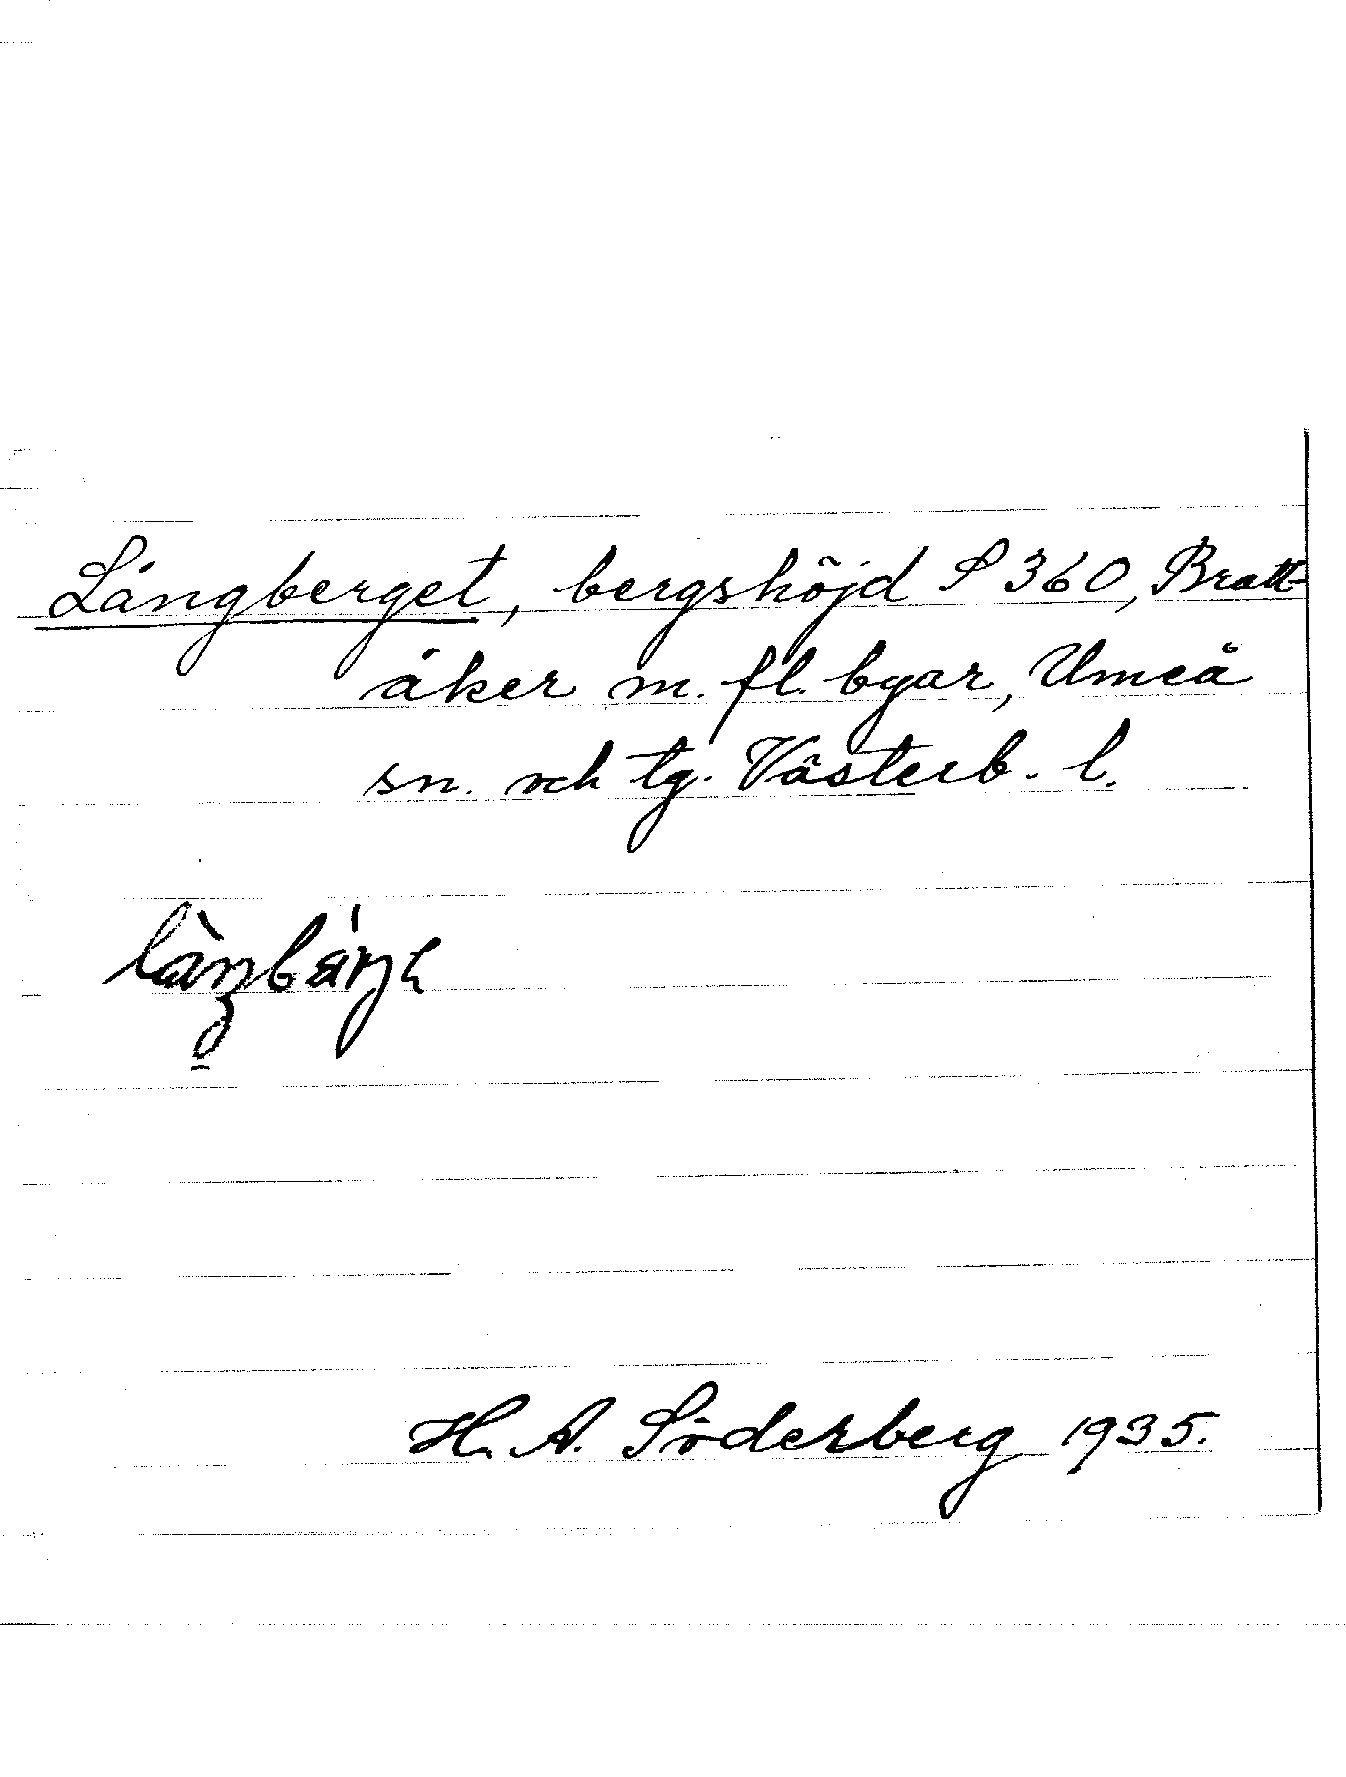 Långberget, bergshöjd S 360, Bratt-
åker m. fl. byar, Umeå
sn. och tg. Västerb. l.
H. A. Söderberg 1935.